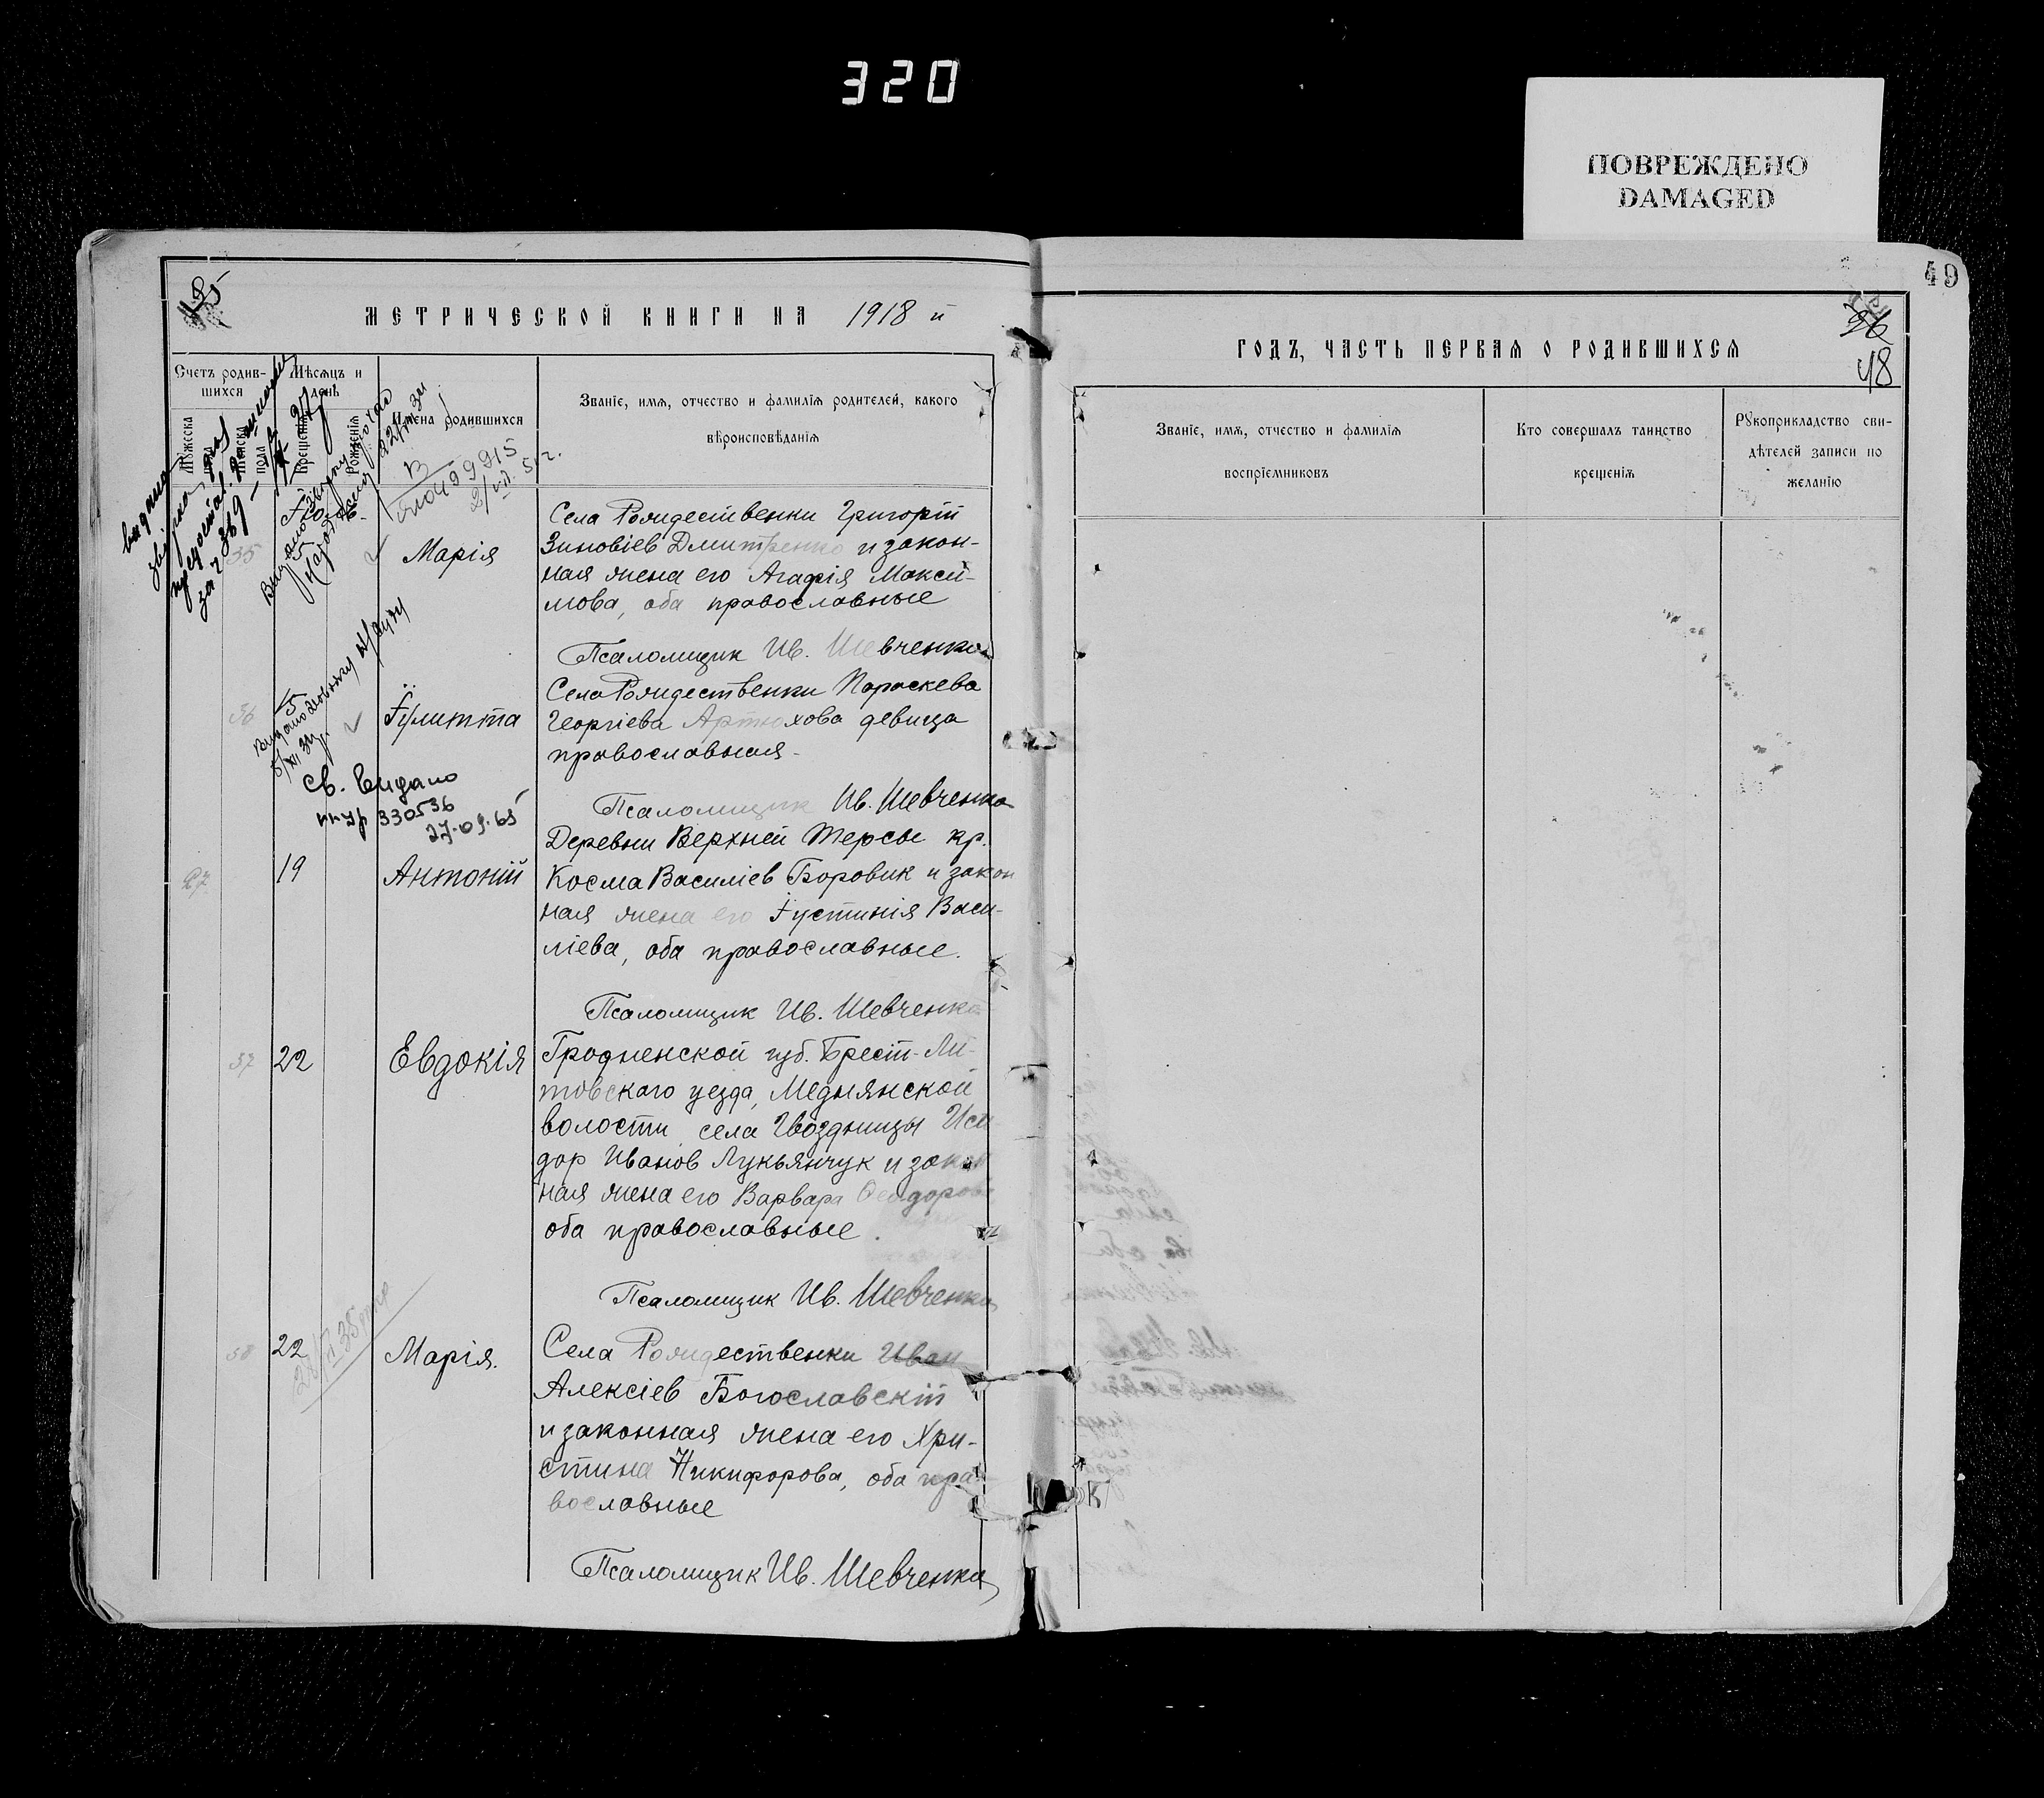 320
ПОВРЕЖДЕНО
DAMAGED
49
МЕТРИЧЕСКОЙ КНИГИ НА 1918 й
Счетъ родив-
шихся
Мѣсяцъ и
день
Мужеска
пола
Женска
пола
Крещенія
Рожденія
Имена родившихся
Званіе, имя, отчество и фамилія родителей, какого
вѣроисповѣданія
499915
35
Марія
Села Рождественки Григорій
Зиновіев Дмитренко и закон-
ная жена его Агафія Макси-
мова, оба православные
Псаломщик Ив. Шевченко
36
5
Іулитта
Села Рождественки Параскева
Георгіева Артюхова девица
православная.
Псаломщик Ив. Шевченко
Св. видано
330536
27.09.65
27
19
Антоній
Деревни Верхней Терсы кр.
Косма Василіев Боровик и закон
ная жена его Іустинія Васи-
ліева, оба православные.
Псаломщик Ив. Шевченко
37
22
Евдокія
Гродненской губ. Брест-Ли-
товского уезда, Меднянской
волости села Гвоздницы Иси
дор Иванов Лукьянчук и закон
ная жена его Варвара Феодорова
оба православные.
Псаломщик Ив. Шевченко
38
22
Марія.
Села Рождественки Иван
Алексіев Богославскій
и законная жена его Хри-
стина Никифорова, оба пра-
вославные
Псаломщик Ив. Шевченко
48
ГОДЪ, ЧАСТЬ ПЕРВАЯ О РОДИВШИХСЯ
Званіе, имя, отчество и фамилія
воспріемниковъ
Кто совершалъ таинство
крещенія
Рукоприкладство сви-
дѣтелей записи по
желанію